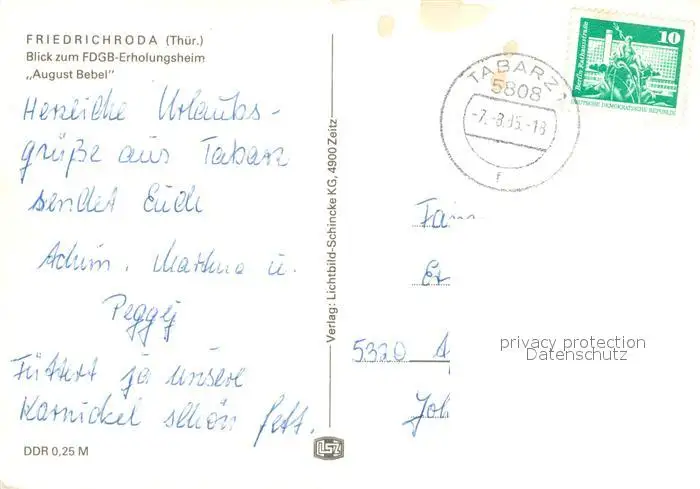 FRIEDRICHRODA (Thür.)
Blick zum FDGB-Erholungsheim
„August Bebel"
Herzliche Urlaubs-
grüße aus Tabarz
sendet Euch
Achim, Martina u.
Peggy
Füttert ja unsere
Karnickel schön fett.
DDR 0,25 M
Verlag: Lichtbild-Schincke KG, 4900 Zeitz
LSZ
TABARZ 1
5808
-7.-8.85.-18
f
Berlin, Rathausstraße
10
DEUTSCHE DEMOKRATISCHE REPUBLIK
Fam
5320
Joh
privacy protection
Datenschutz